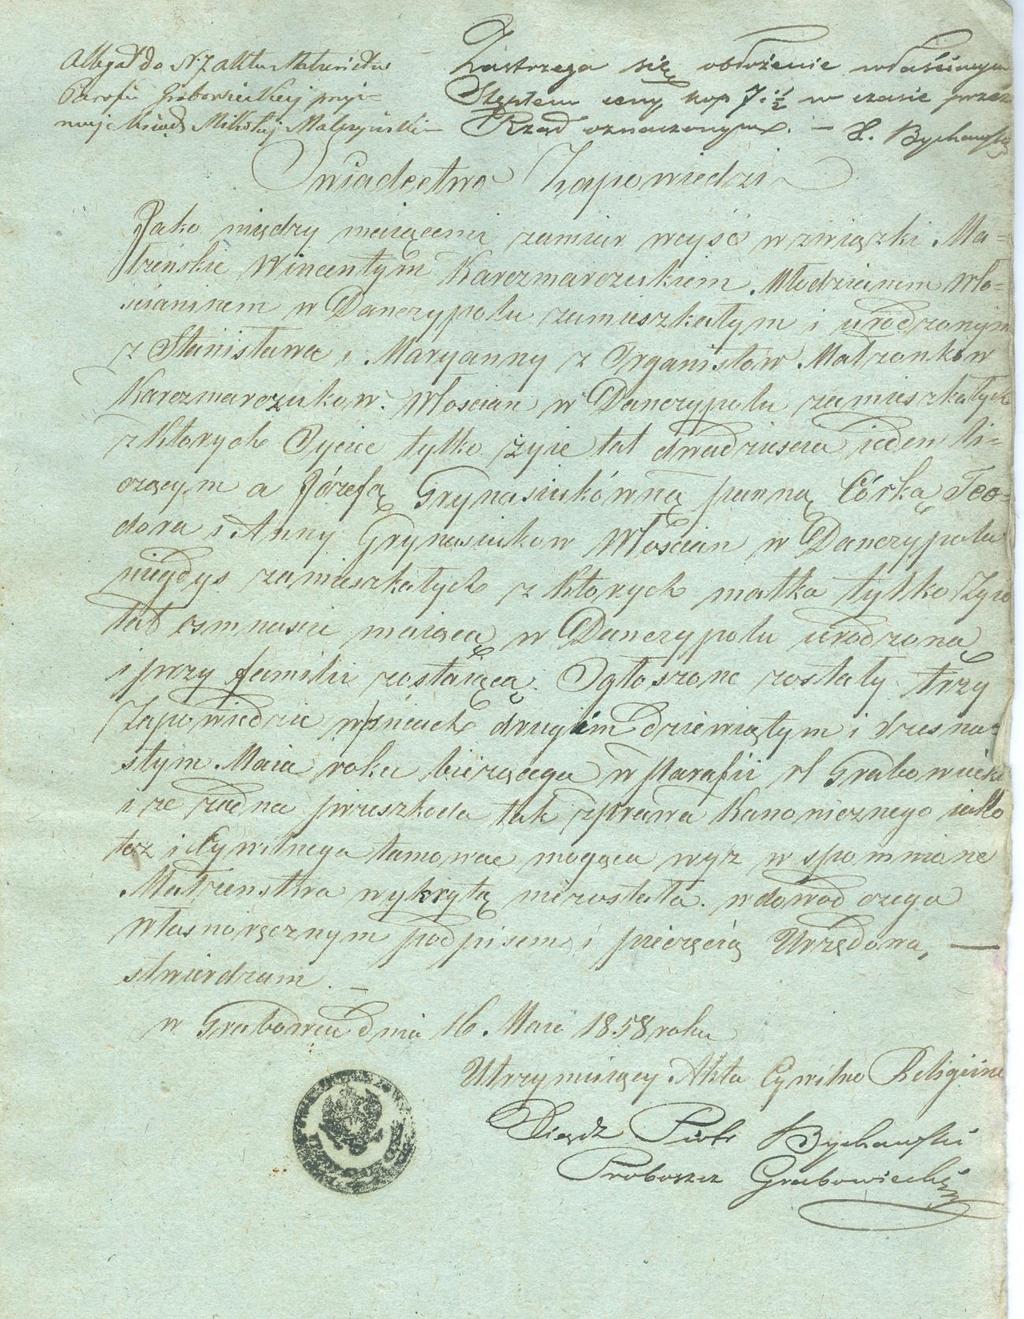 Allegat do N. 7 Aktu Małżeństw
Parafii Grabowieckiej przyj-
muje Ksiądz Mikołaj
Zastrzega się obłożenie właściwym
Stęplem ceny kop 7 1/2 w czasie przez
Rząd oznaczonym. – X. Bychawski
Swiadectwo Zapowiedzi
Jako między maiącemi zamiar wejść w związki Ma-
łżeńskie Wincentym Karczmarczukiem Młodzianem Wło-
scianinem w Danczypolu zamieszkałym i urodzonym
z Stanisława i Maryanny z Organistów Małżonków
Karczmarczuków Włoscian w Danczypolu zamieszkałych
z których Oyciec tylko żyie lat dwadziescia ieden li-
czącym a Józefą Grynasiukówną panną Córką Teo-
dora i Anny Grynasiuków Włoscian w Danczypolu
niegdys zamieszkałych z których matka tylko żyie
lat osmnascie maiącą w Danczypolu urodzoną
i przy familii zostaiącą. Ogłoszone zostały trzy
Zapowiedzie w dniach drugim dziewiątym i szesna-
stym Maia roku bieżącego w Parafii rł Grabowiecki
i że żadna przeszkoda tak z prawa Kanonicznego iako
też i Cywilnego tamować mogąca wyż w spomnione
Małżenstwa wykrytą niezostała. w dowod czego
własnoręcznym podpisem i pieczęcią Urzędową, —
stwierdzam. –
w Grabowcu dnia 16. Maia 1858 roku
Utrzymuiący Akta Cywilno Religiine
Ksiądz Piotr Bychawski
Proboszcz Grabowiecki